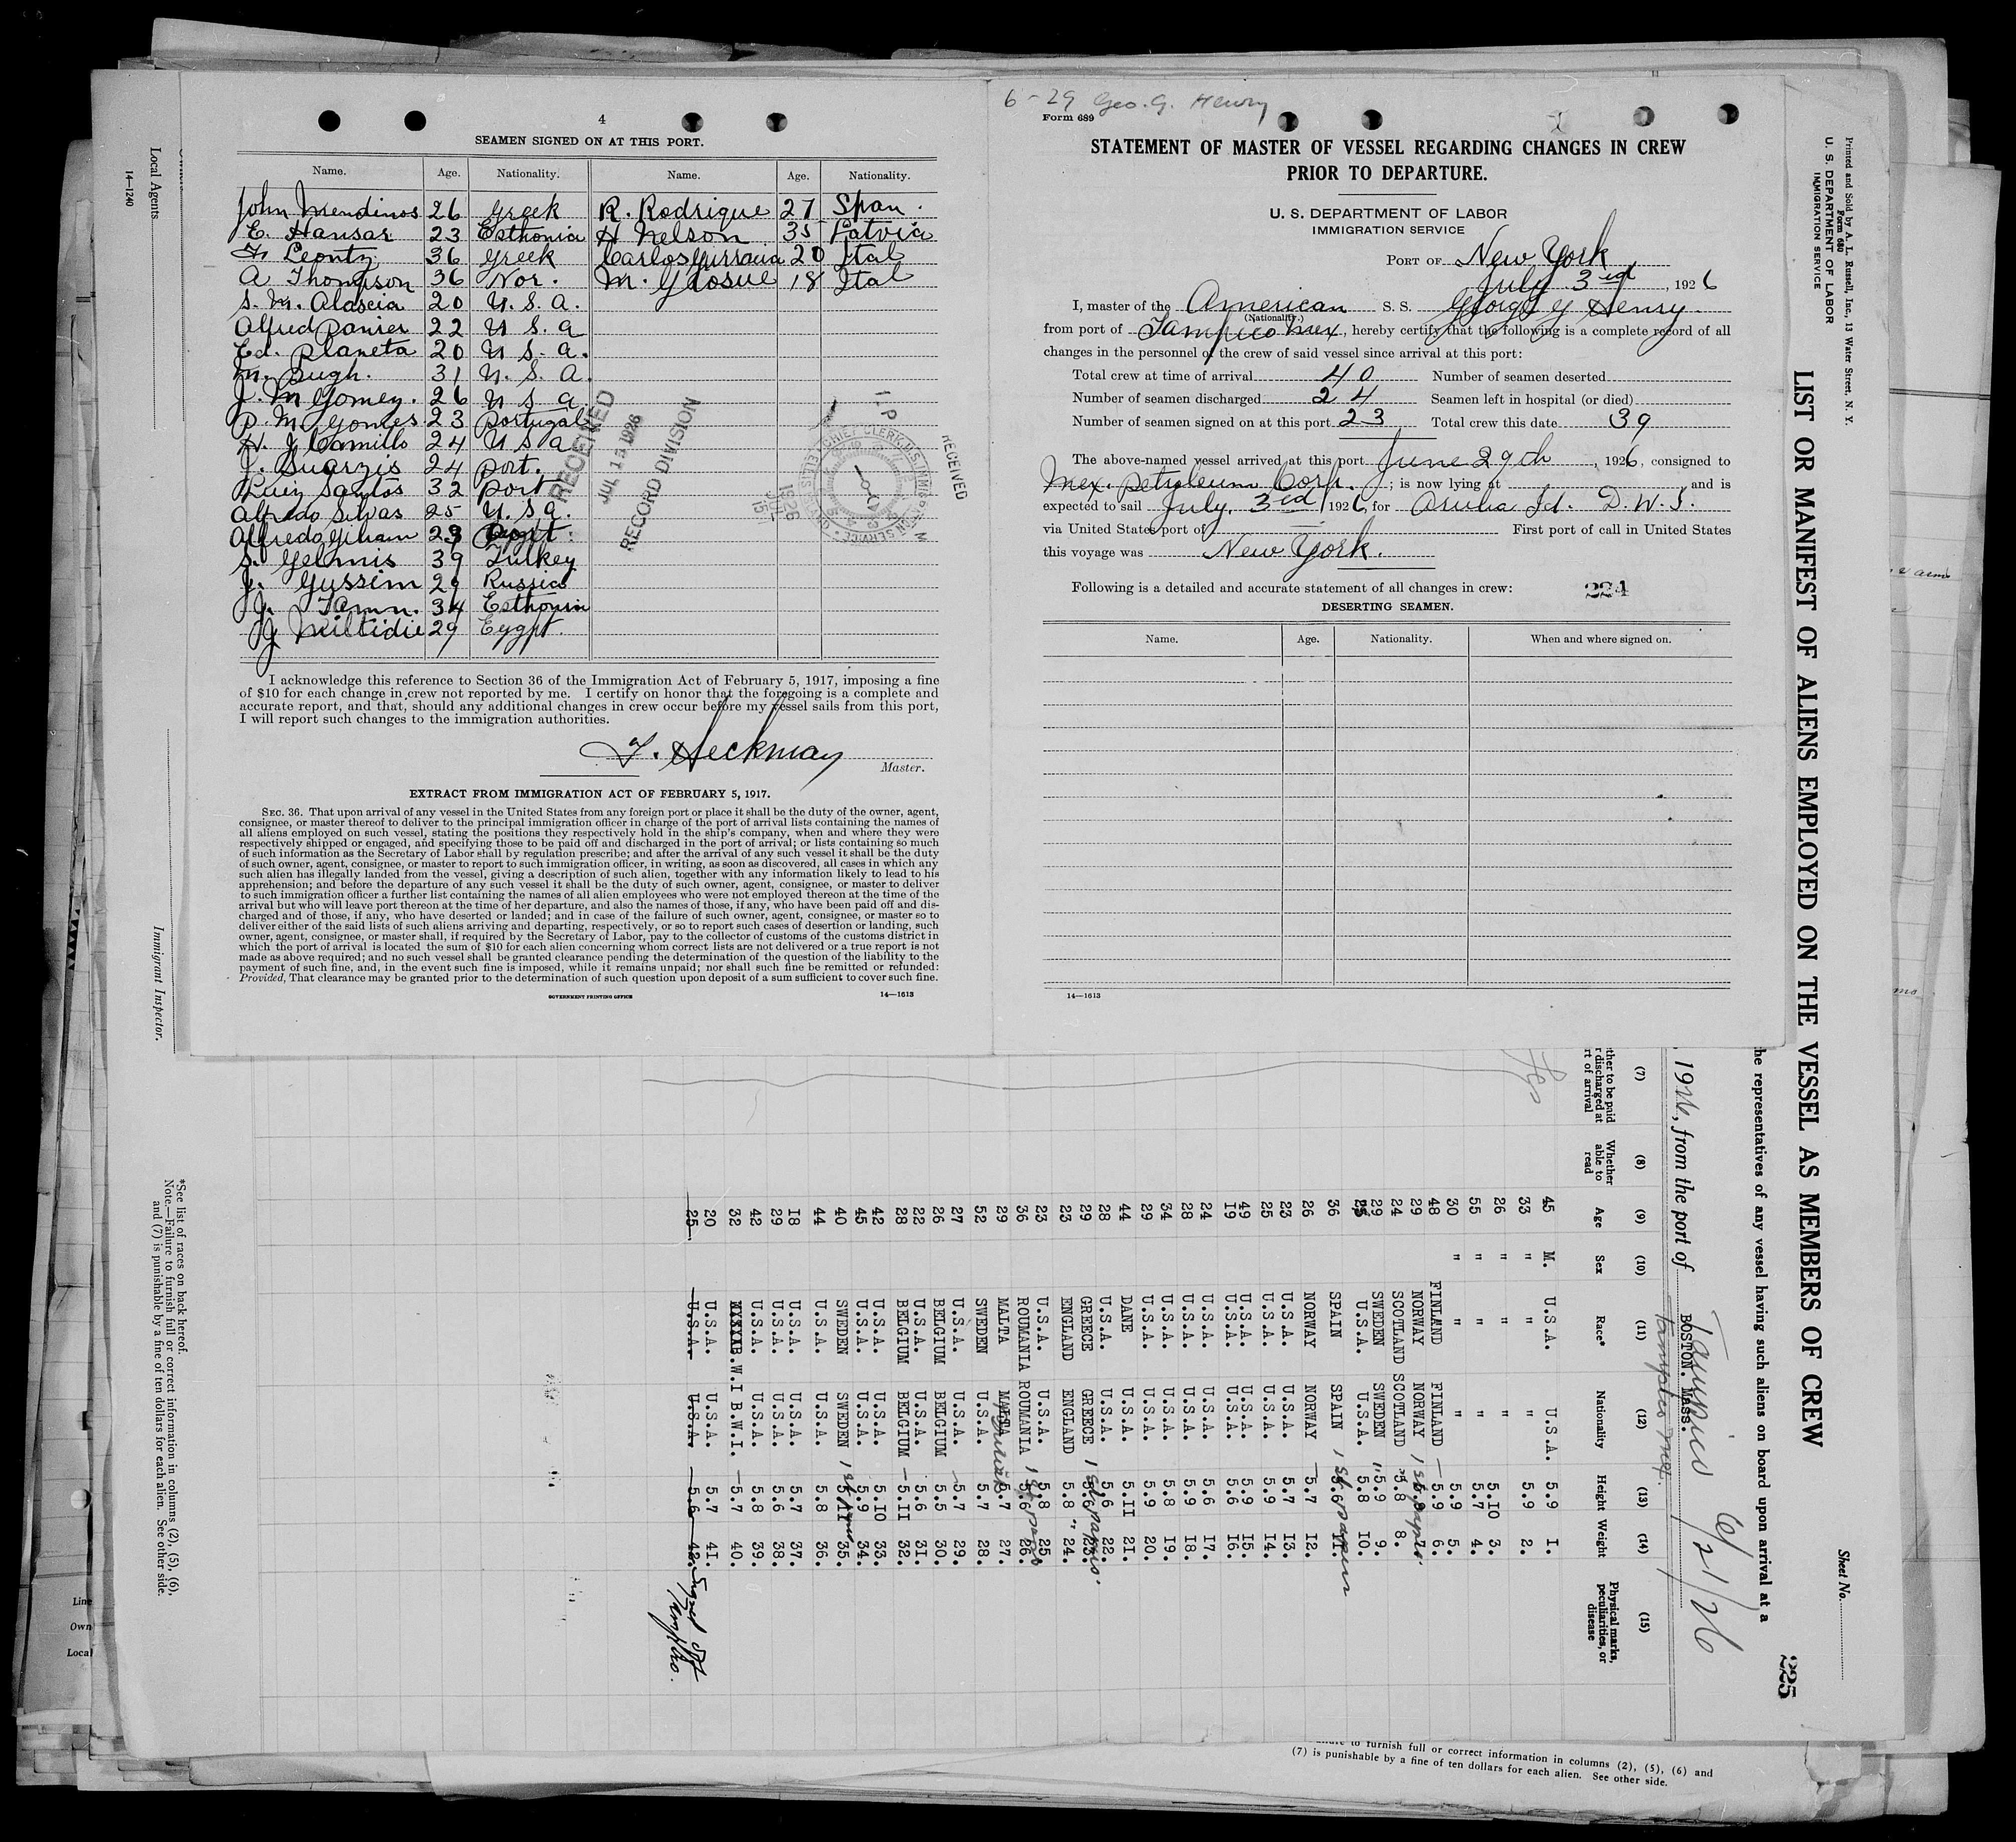 4
SEAMEN SIGNED ON AT THIS PORT.
Name. Age. Nationality. Name. Age. Nationality.
John Mendinos 26 Greek R. Rodrigue 27 Span.
E. Hansar 23 Esthonia H Nelson 35 Latvia
Leontz 36 Greek Carlos 20 Ital
A Thompson 36 Nor. M. Glosue 18 Ital
S. M. Alascia 20 U. S. A.
Alfred 22 U S a
Ed. Planeta 20 U S. a.
M. Pugh. 31 U. S. A.
J. M Gomez. 26 U S a
P. M. Gomes 23 Portugal
H. J Camillo 24 U S a
J. Suarzis 24 port.
Luiz Santos 32 port
Alfredo Silvas 25 U. S a.
Alfredo 29
S. Gelmis 39 Turkey
J. Yussim 29 Russia
J. Tamn. 34 Esthonia
J Miltidie 29 Eygpt.
RECEIVED
JUL 15 1926
RECORD DIVISION
RECEIVED
I acknowledge this reference to Section 36 of the Immigration Act of February 5, 1917, imposing a fine
of $10 for each change in crew not reported by me. I certify on honor that the foregoing is a complete and
accurate report, and that, should any additional changes in crew occur before my vessel sails from this port,
I will report such changes to the immigration authorities.
T. Heckman
Master.
EXTRACT FROM IMMIGRATION ACT OF FEBRUARY 5, 1917.
SEC. 36. That upon arrival of any vessel in the United States from any foreign port or place it shall be the duty of the owner, agent,
consignee, or master thereof to deliver to the principal immigration officer in charge of the port of arrival lists containing the names of
all aliens employed on such vessel, stating the positions they respectively hold in the ship's company, when and where they were
respectively shipped or engaged, and specifying those to be paid off and discharged in the port of arrival; or lists containing so much
of such information as the Secretary of Labor shall by regulation prescribe; and after the arrival of any such vessel it shall be the duty
of such owner, agent, consignee, or master to report to such immigration officer, in writing, as soon as discovered, all cases in which any
such alien has illegally landed from the vessel, giving a description of such alien, together with any information likely to lead to his
apprehension; and before the departure of any such vessel it shall be the duty of such owner, agent, consignee, or master to deliver
to such immigration officer a further list containing the names of all alien employees who were not employed thereon at the time of the
arrival but who will leave port thereon at the time of her departure, and also the names of those, if any, who have been paid off and dis-
charged and of those, if any, who have deserted or landed; and in case of the failure of such owner, agent, consignee, or master so to
deliver either of the said lists of such aliens arriving and departing, respectively, or so to report such cases of desertion or landing, such
owner, agent, consignee, or master shall, if required by the Secretary of Labor, pay to the collector of customs of the customs district in
which the port of arrival is located the sum of $10 for each alien concerning whom correct lists are not delivered or a true report is not
made as above required; and no such vessel shall be granted clearance pending the determination of the question of the liability to the
payment of such fine, and, in the event such fine is imposed, while it remains unpaid; nor shall such fine be remitted or refunded:
Provided, That clearance may be granted prior to the determination of such question upon deposit of a sum sufficient to cover such fine.
GOVERNMENT PRINTING OFFICE 14—1613
6-29 Geo. G. Henry
Form 689
STATEMENT OF MASTER OF VESSEL REGARDING CHANGES IN CREW
PRIOR TO DEPARTURE.
U. S. DEPARTMENT OF LABOR
IMMIGRATION SERVICE
PORT OF New York
July 3rd, 1926
I, master of the American S. S. George G Henry
(Nationality.)
from port of Tampico Mex, hereby certify that the following is a complete record of all
changes in the personnel of the crew of said vessel since arrival at this port:
Total crew at time of arrival 40 Number of seamen deserted
Number of seamen discharged 24 Seamen left in hospital (or died)
Number of seamen signed on at this port 23 Total crew this date 39
The above-named vessel arrived at this port June 29th, 1926, consigned to
Mex. Petroleum Corp.; is now lying at and is
expected to sail July 3rd 1926, for Aruba Id. D. W. I.
via United States port of First port of call in United States
this voyage was New York.
Following is a detailed and accurate statement of all changes in crew: 224
DESERTING SEAMEN.
Name. Age. Nationality. When and where signed on.
14—1613
14—1240
Local Agents
Immigrant Inspector.
*See list of races on back hereof.
Note.—Failure to furnish full or correct information in columns (2), (5), (6),
and (7) is punishable by a fine of ten dollars for each alien. See other side.
Printed and Sold by A. L. Russell, Inc., 13 Water Street, N. Y.
Form 680
U. S. DEPARTMENT OF LABOR
IMMIGRATION SERVICE
LIST OR MANIFEST OF ALIENS EMPLOYED ON THE VESSEL AS MEMBERS OF CREW
Sheet No.
225
the representatives of any vessel having such aliens on board upon arrival at a
1926, from the port of BOSTON. MASS. Tampico 6/21/26
Tampico Mex.
(7) (8) (9) (10) (11) (12) (13) (14) (15)
Whether able to read Age Sex Race* Nationality Height Weight Physical marks, peculiarities, or disease
Yes
45 M. U.S.A. U.S.A. 5.9 1.
33 " " " 5.9 2.
26 " " " 5.10 3.
55 " " " 5.7 4.
30 " " " 5.9 5.
48 FINLAND FINLAND 5.9 6.
29 NORWAY NORWAY 1st papers
24 SCOTLAND SCOTLAND 5.8 8.
29 SWEDEN SWEDEN 5.9 9.
U.S.A. U.S.A. 5.8 10.
36 SPAIN SPAIN 1st papers
26 NORWAY NORWAY 5.7 12.
23 U.S.A. U.S.A. 5.7 13.
25 U.S.A. U.S.A. 5.9 14.
49 U.S.A. U.S.A. 5.9 15.
19 U.S.A. U.S.A. 5.6 16.
24 U.S.A. U.S.A. 5.6 17.
28 U.S.A. U.S.A. 5.9 18.
34 U.S.A. U.S.A. 5.8 19.
29 U.S.A. U.S.A. 5.9 20.
44 DANE U.S.A. 5.11 21.
28 U.S.A. U.S.A. 5.6 22.
29 GREECE GREECE 1st papers 5.6 23.
23 ENGLAND ENGLAND 5.8 " 24.
23 U.S.A. U.S.A. 5.8 25.
36 ROUMANIA ROUMANIA 1st papers 5.6 26.
29 MALTA MALTA 5.7 27.
52 SWEDEN U.S.A. 5.7 28.
27 U.S.A. U.S.A. 5.7 29.
26 BELGIUM BELGIUM 5.5 30.
22 U.S.A. U.S.A. 5.6 31.
28 BELGIUM BELGIUM 5.11 32.
42 U.S.A. U.S.A. 5.10 33.
45 U.S.A. U.S.A. 5.9 34.
40 SWEDEN SWEDEN 1st papers 5.11 35.
44 U.S.A. U.S.A. 5.8 36.
18 U.S.A. U.S.A. 5.7 37.
29 U.S.A. U.S.A. 5.6 38.
42 U.S.A. U.S.A. 5.8 39.
32 B.W.I B.W.I. 5.7 40.
20 U.S.A. U.S.A. 5.7 41.
25. U.S.A. U.S.A. 5.6 42.
Line
Own
Local
to furnish full or correct information in columns (2), (5), (6) and
(7) is punishable by a fine of ten dollars for each alien. See other side.